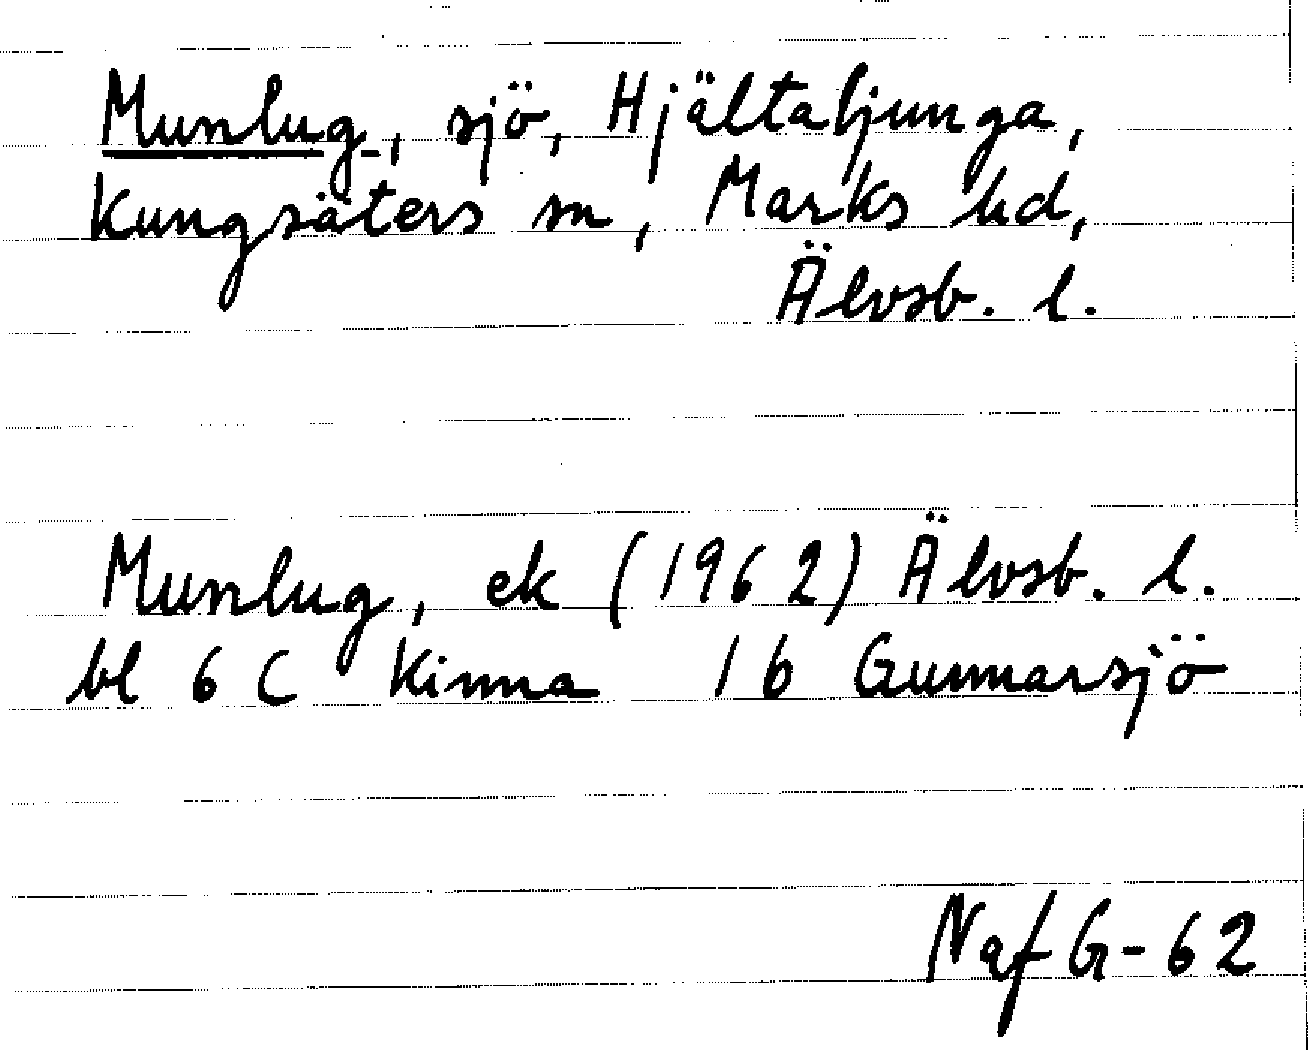 Munlug, sjö, Hjältaljunga,
Kungsäters sn, Marks hd,
Älvsb. l.
Munlug, ek (1962) Älvsb. l.
bl 6 C Kinna 1b Gunnarsjö
Naf G-62